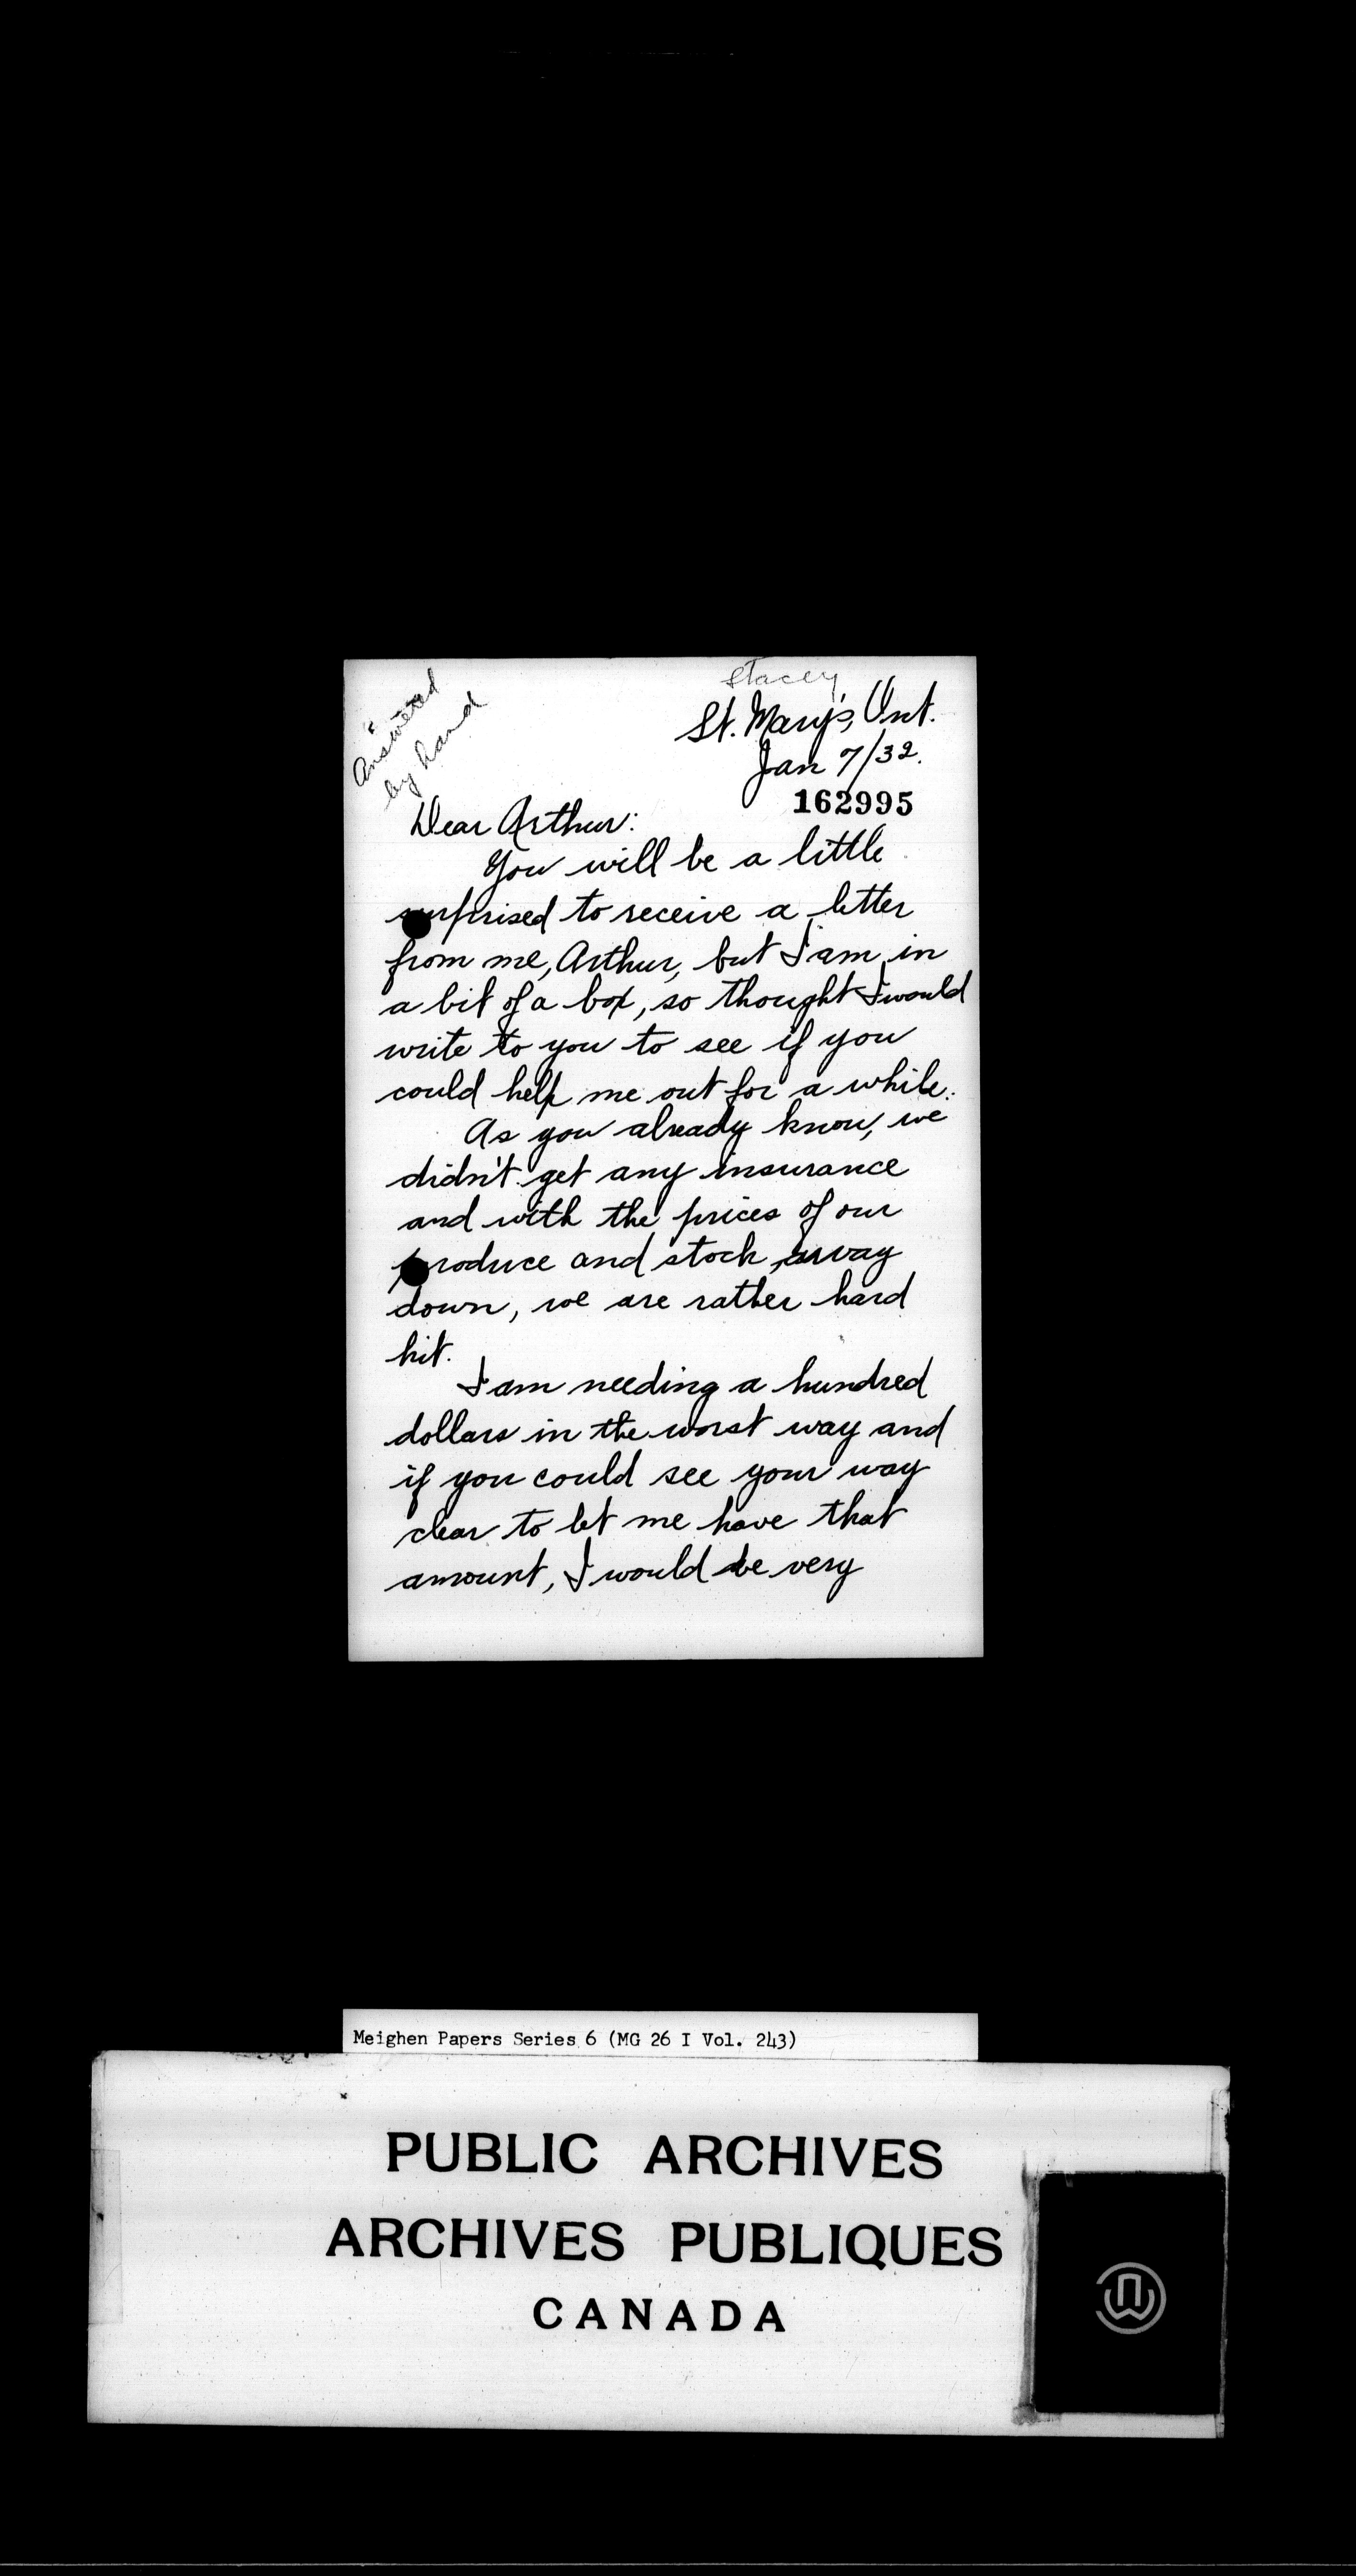 Answered
by hand
Stacey
St. Mary's, Ont.
Jan 7/32.
162995
Dear Arthur:
You will be a little
surprised to receive a letter
from me, Arthur, but I am in
a bit of a box, so thought I would
write to you to see if you
could help me out for a while.
As you already know, we
didn't get any insurance
and with the prices of our
produce and stock, away
down, we are rather hard
hit.
I am needing a hundred
dollars in the worst way and
if you could see your way
clear to let me have that
amount, I would be very
Meighen Papers Series 6 (MG 26 I Vol. 243)
PUBLIC ARCHIVES
ARCHIVES PUBLIQUES
CANADA